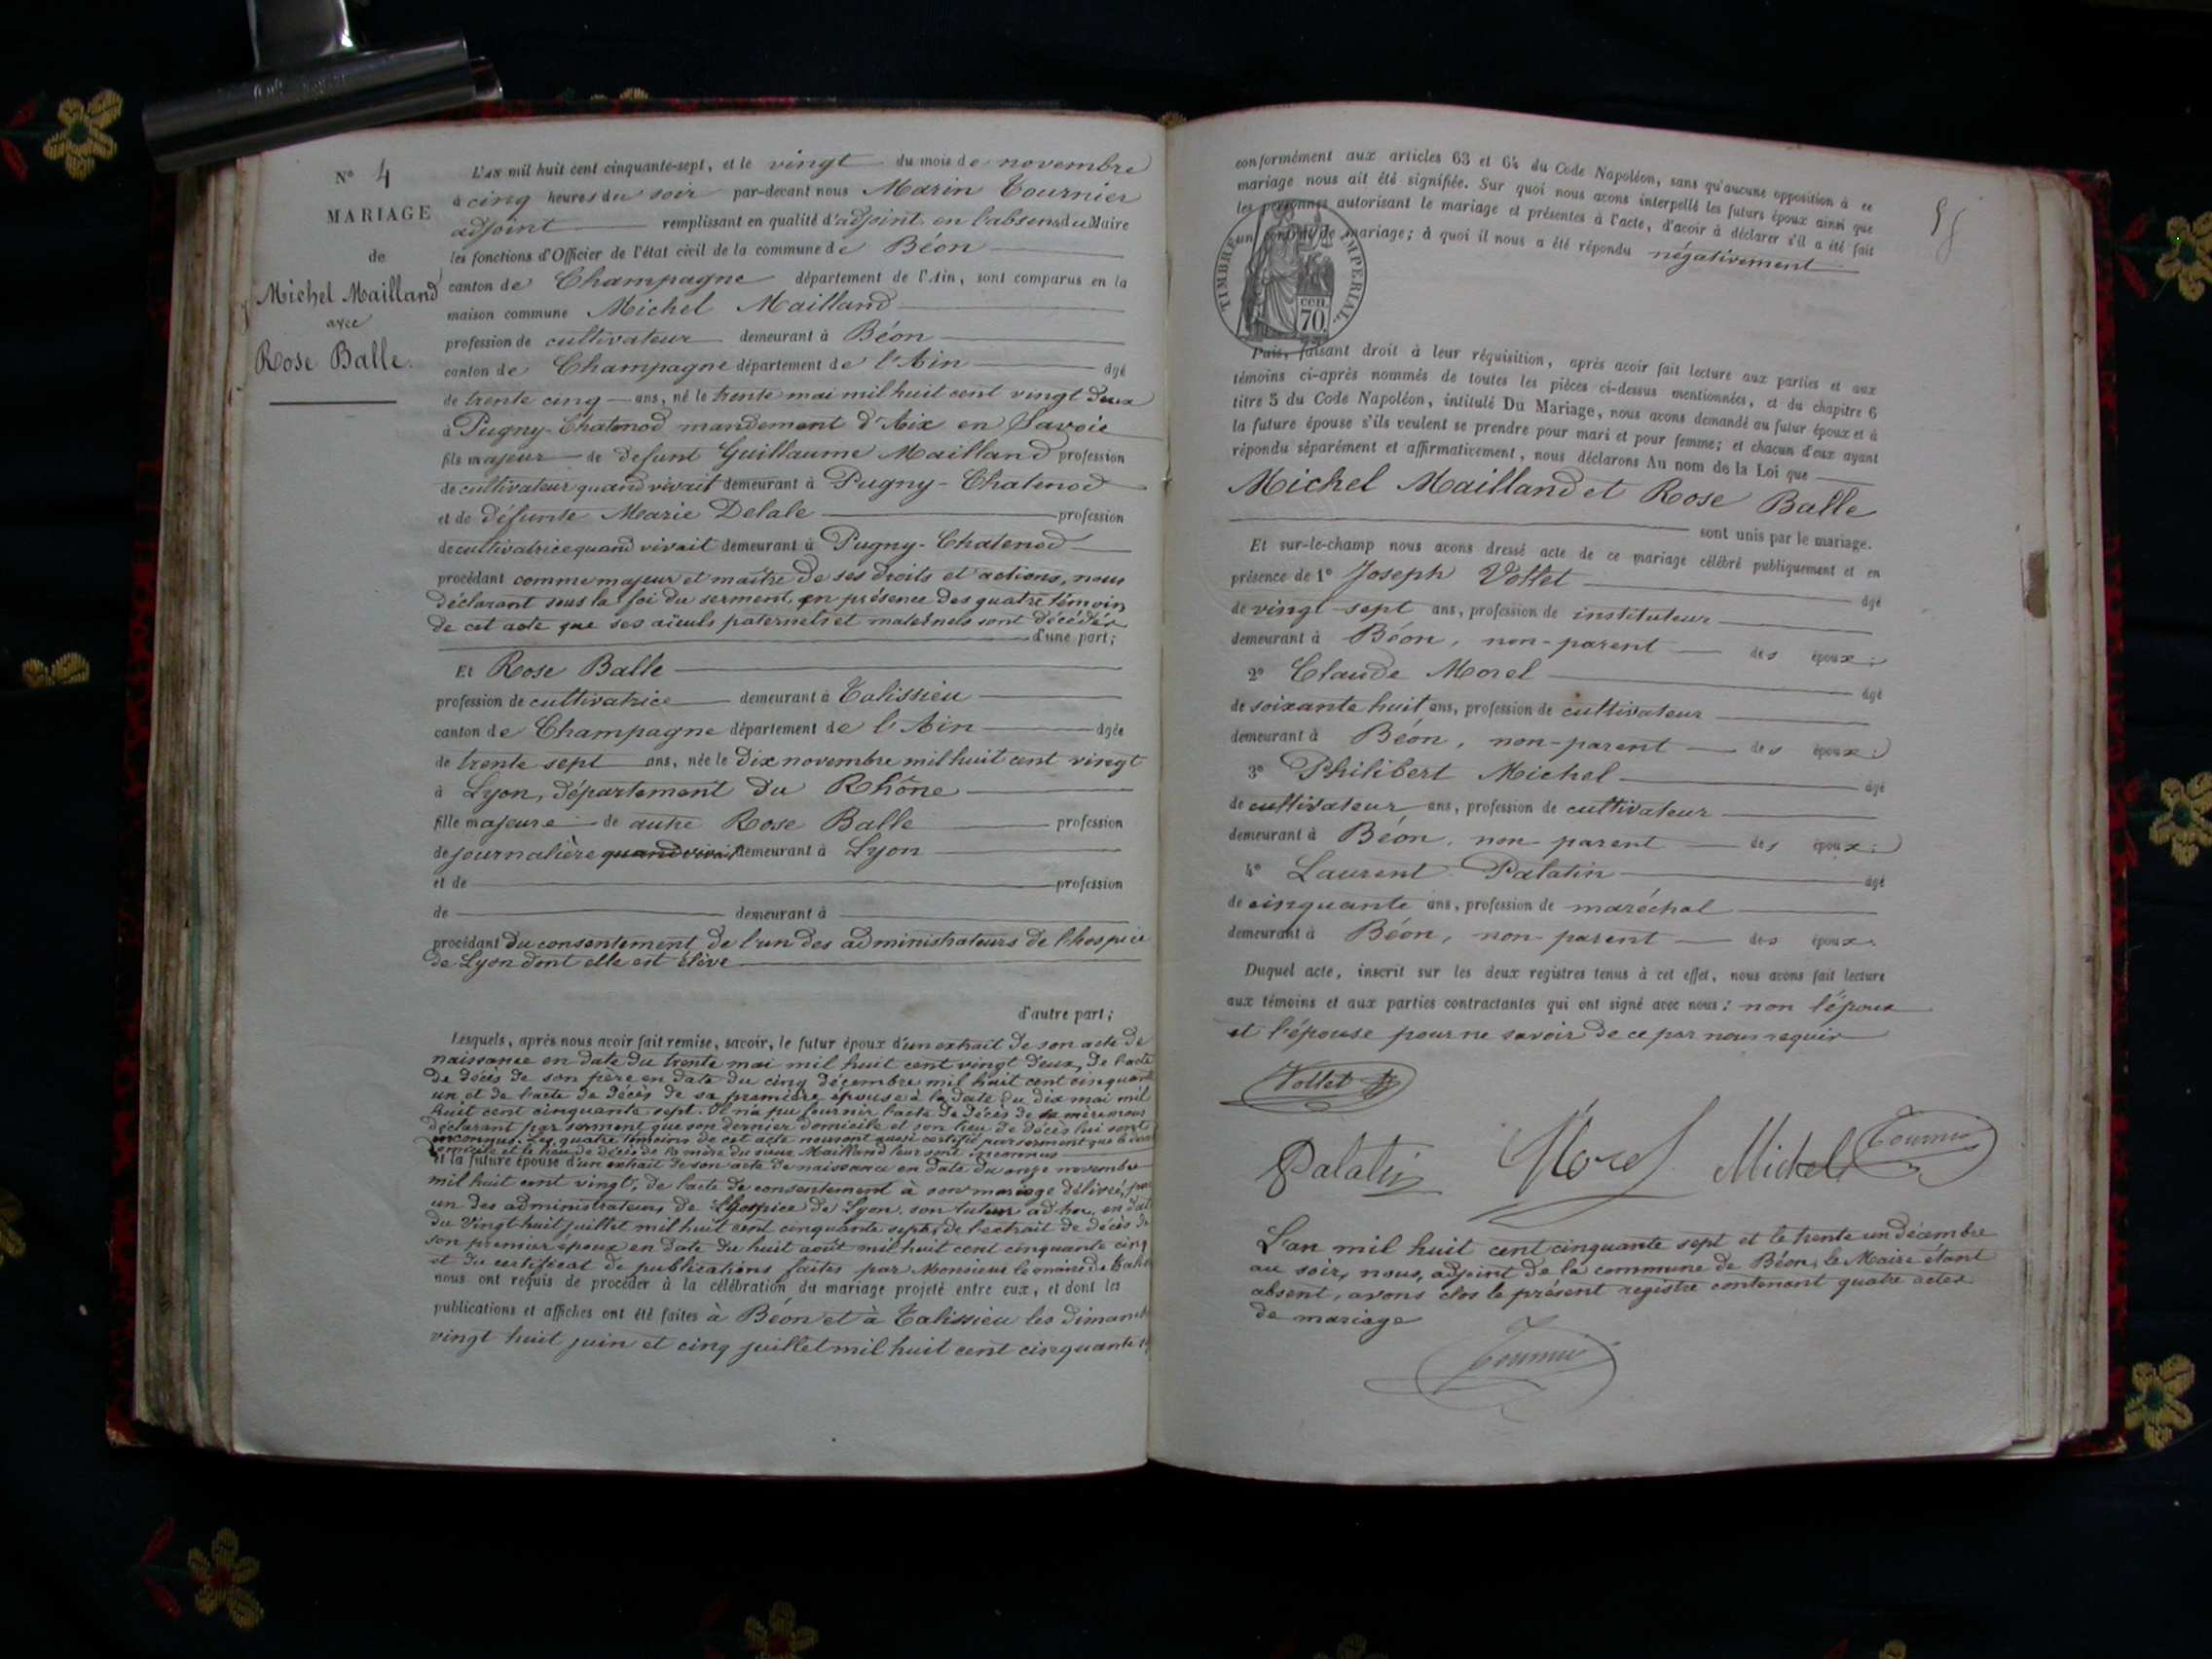 N° 4
MARIAGE
de
Michel Mailland
avec
Rose Balle.
L'AN mil huit cent cinquante-sept, et le vingt du mois de novembre
à cinq heures du soir par-devant nous Marin Tournier
adjoint remplissant en qualité d'adjoint en l'absence du Maire
les fonctions d'Officier de l'état civil de la commune de Béon
canton de Champagne département de l'Ain, sont comparus en la
maison commune Michel Mailland
profession de cultivateur demeurant à Béon
canton de Champagne département de l'Ain âgé
de trente cinq ans, né le trente mai mil huit cent vingt deux
à Pugny-Chatenod mandement d'Aix en Savoie
fils majeur de defunt Guillaume Mailland profession
de cultivateur quand vivait demeurant à Pugny-Chatenod
et de défunte Marie Delale profession
de cultivatrice quand vivait demeurant à Pugny-Chatenod
procédant comme majeur et maître de ses droits et actions, nous
déclarant sous la foi du serment, en présence des quatre témoins
de cet acte que ses aïeuls paternels et maternels sont décédés
d'une part;
Et Rose Balle
profession de cultivatrice demeurant à Talissieu
canton de Champagne département de l'Ain âgée
de trente sept ans, née le dix novembre mil huit cent vingt
à Lyon, département du Rhône
fille majeure de autre Rose Balle profession
de journalière quand vivait demeurant à Lyon
et de profession
de demeurant à
procédant du consentement de l'un des administrateurs de l'hospice
de Lyon dont elle est élève
d'autre part;
Lesquels, après nous avoir fait remise, savoir, le futur époux d'un extrait de son acte de
naissance en date du trente mai mil huit cent vingt deux, de l'acte
de décès de son père en date du cinq décembre mil huit cent cinquante
un et de l'acte de décès de sa première épouse à la date du dix mai mil
huit cent cinquante sept. Il n'a pu fournir l'acte de décès de sa mère nous
déclarant par serment que son dernier domicile et son lieu de décès lui sont
inconnus. Les quatre témoins de cet acte nous ont aussi certifié par serment que le dernier
domicile et le lieu de décès de la mère du sieur Mailland leur sont inconnus
et la future épouse d'un extrait de son acte de naissance en date du onze novembre
mil huit cent vingt, de l'acte de consentement à son mariage délivré par
un des administrateurs de l'Hospice de Lyon, son tuteur ad hoc, en date
du vingt-huit juillet mil huit cent cinquante sept, de l'extrait de décès de
son premier époux en date du huit août mil huit cent cinquante cinq
et du certificat de publications faites par Monsieur le maire de
nous ont requis de procéder à la célébration du mariage projeté entre eux, et dont les
publications et affiches ont été faites à Béon et à Talissieu les
vingt huit juin et cinq juillet mil huit cent cinquante
conformément aux articles 63 et 64 du Code Napoléon, sans qu'aucune opposition à ce
mariage nous ait été signifiée. Sur quoi nous avons interpellé les futurs époux ainsi que
les personnes autorisant le mariage et présentes à l'acte, d'avoir à déclarer s'il a été fait
un contrat de mariage; à quoi il nous a été répondu négativement
TIMBRE IMPERIAL.
CEN.
70.
Puis, faisant droit à leur réquisition, après avoir fait lecture aux parties et aux
témoins ci-après nommés de toutes les pièces ci-dessus mentionnées, et du chapitre 6
titre 5 du Code Napoléon, intitulé Du Mariage, nous avons demandé au futur époux et à
la future épouse s'ils veulent se prendre pour mari et pour femme; et chacun d'eux ayant
répondu séparément et affirmativement, nous déclarons Au nom de la Loi que
Michel Mailland et Rose Balle
sont unis par le mariage.
Et sur-le-champ nous avons dressé acte de ce mariage célébré publiquement et en
présence de 1° Joseph Vollet âgé
de vingt-sept ans, profession de instituteur
demeurant à Béon, non-parent des époux;
2° Claude Morel âgé
de soixante huit ans, profession de cultivateur
demeurant à Béon, non-parent des époux;
3° Philibert Michel âgé
de cultivateur ans, profession de cultivateur
demeurant à Béon, non-parent des époux;
4° Laurent Palatin âgé
de cinquante ans, profession de maréchal
demeurant à Béon, non-parent des époux.
Duquel acte, inscrit sur les deux registres tenus à cet effet, nous avons fait lecture
aux témoins et aux parties contractantes qui ont signé avec nous: non l'époux
et l'épouse pour ne savoir de ce par nous requis
Vollet
Palatin Morel Michel Tournier
L'an mil huit cent cinquante sept et le trente un décembre
au soir, nous, adjoint de la commune de Béon, le Maire étant
absent, avons clos le présent registre contenant quatre actes
de mariage
Tournier